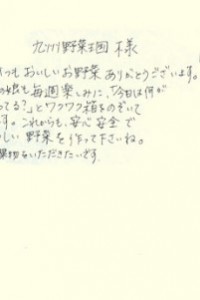 九州野菜王国 様
いつもおいしいお野菜ありがとうございます。
の娘も毎週楽しみに、「今日は何が
ってる?」とワクワク箱をのぞいて
す。これからも、安心安全で
しい野菜を作って下さいね。
果物もいただきたいです。